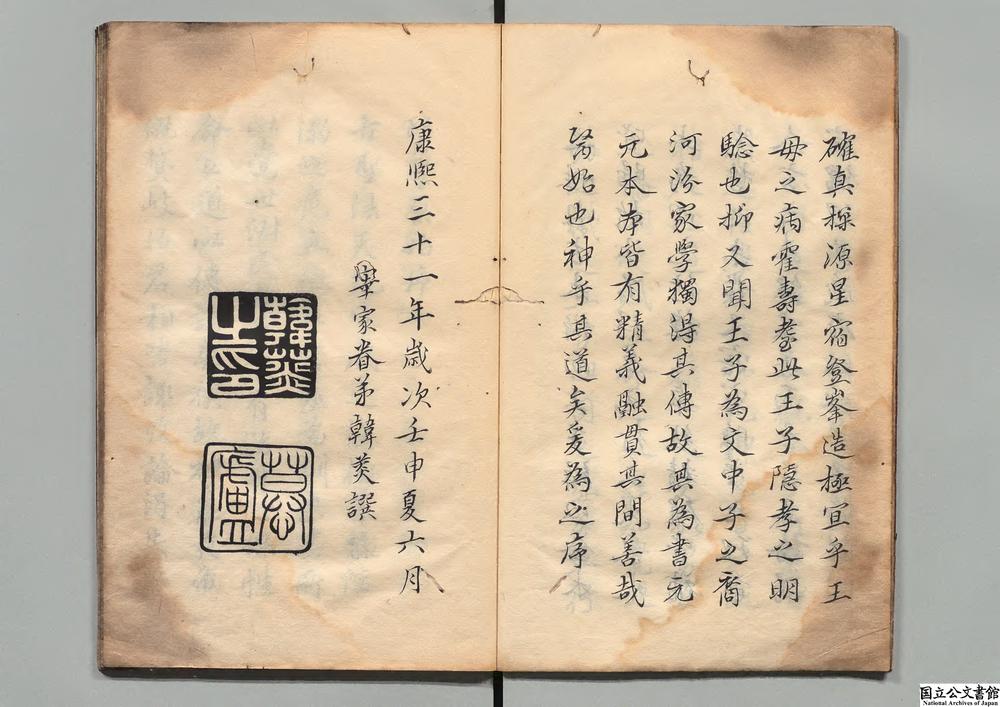 確真探源星宿登峯造極宜乎王
母之病霍壽耋此王子隱孝之明
驗也抑又聞王子為文中子之裔
河汾家學獨得其傳故其為書元
元本本皆有精義融貫其間善哉
始也神乎其道矣爰為之序
康熙三十一年歲次壬申夏六月
家眷弟韓菼譔
韓菼之印
慕廬
国立公文書館
National Archives of Japan